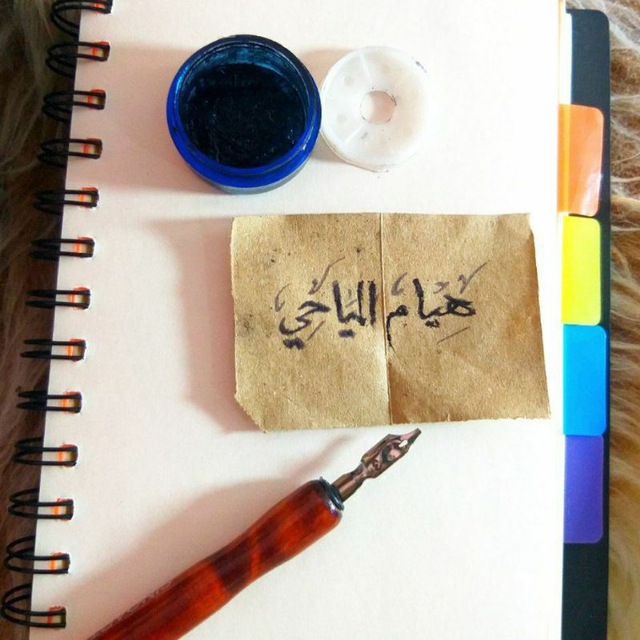 هيام الياحي